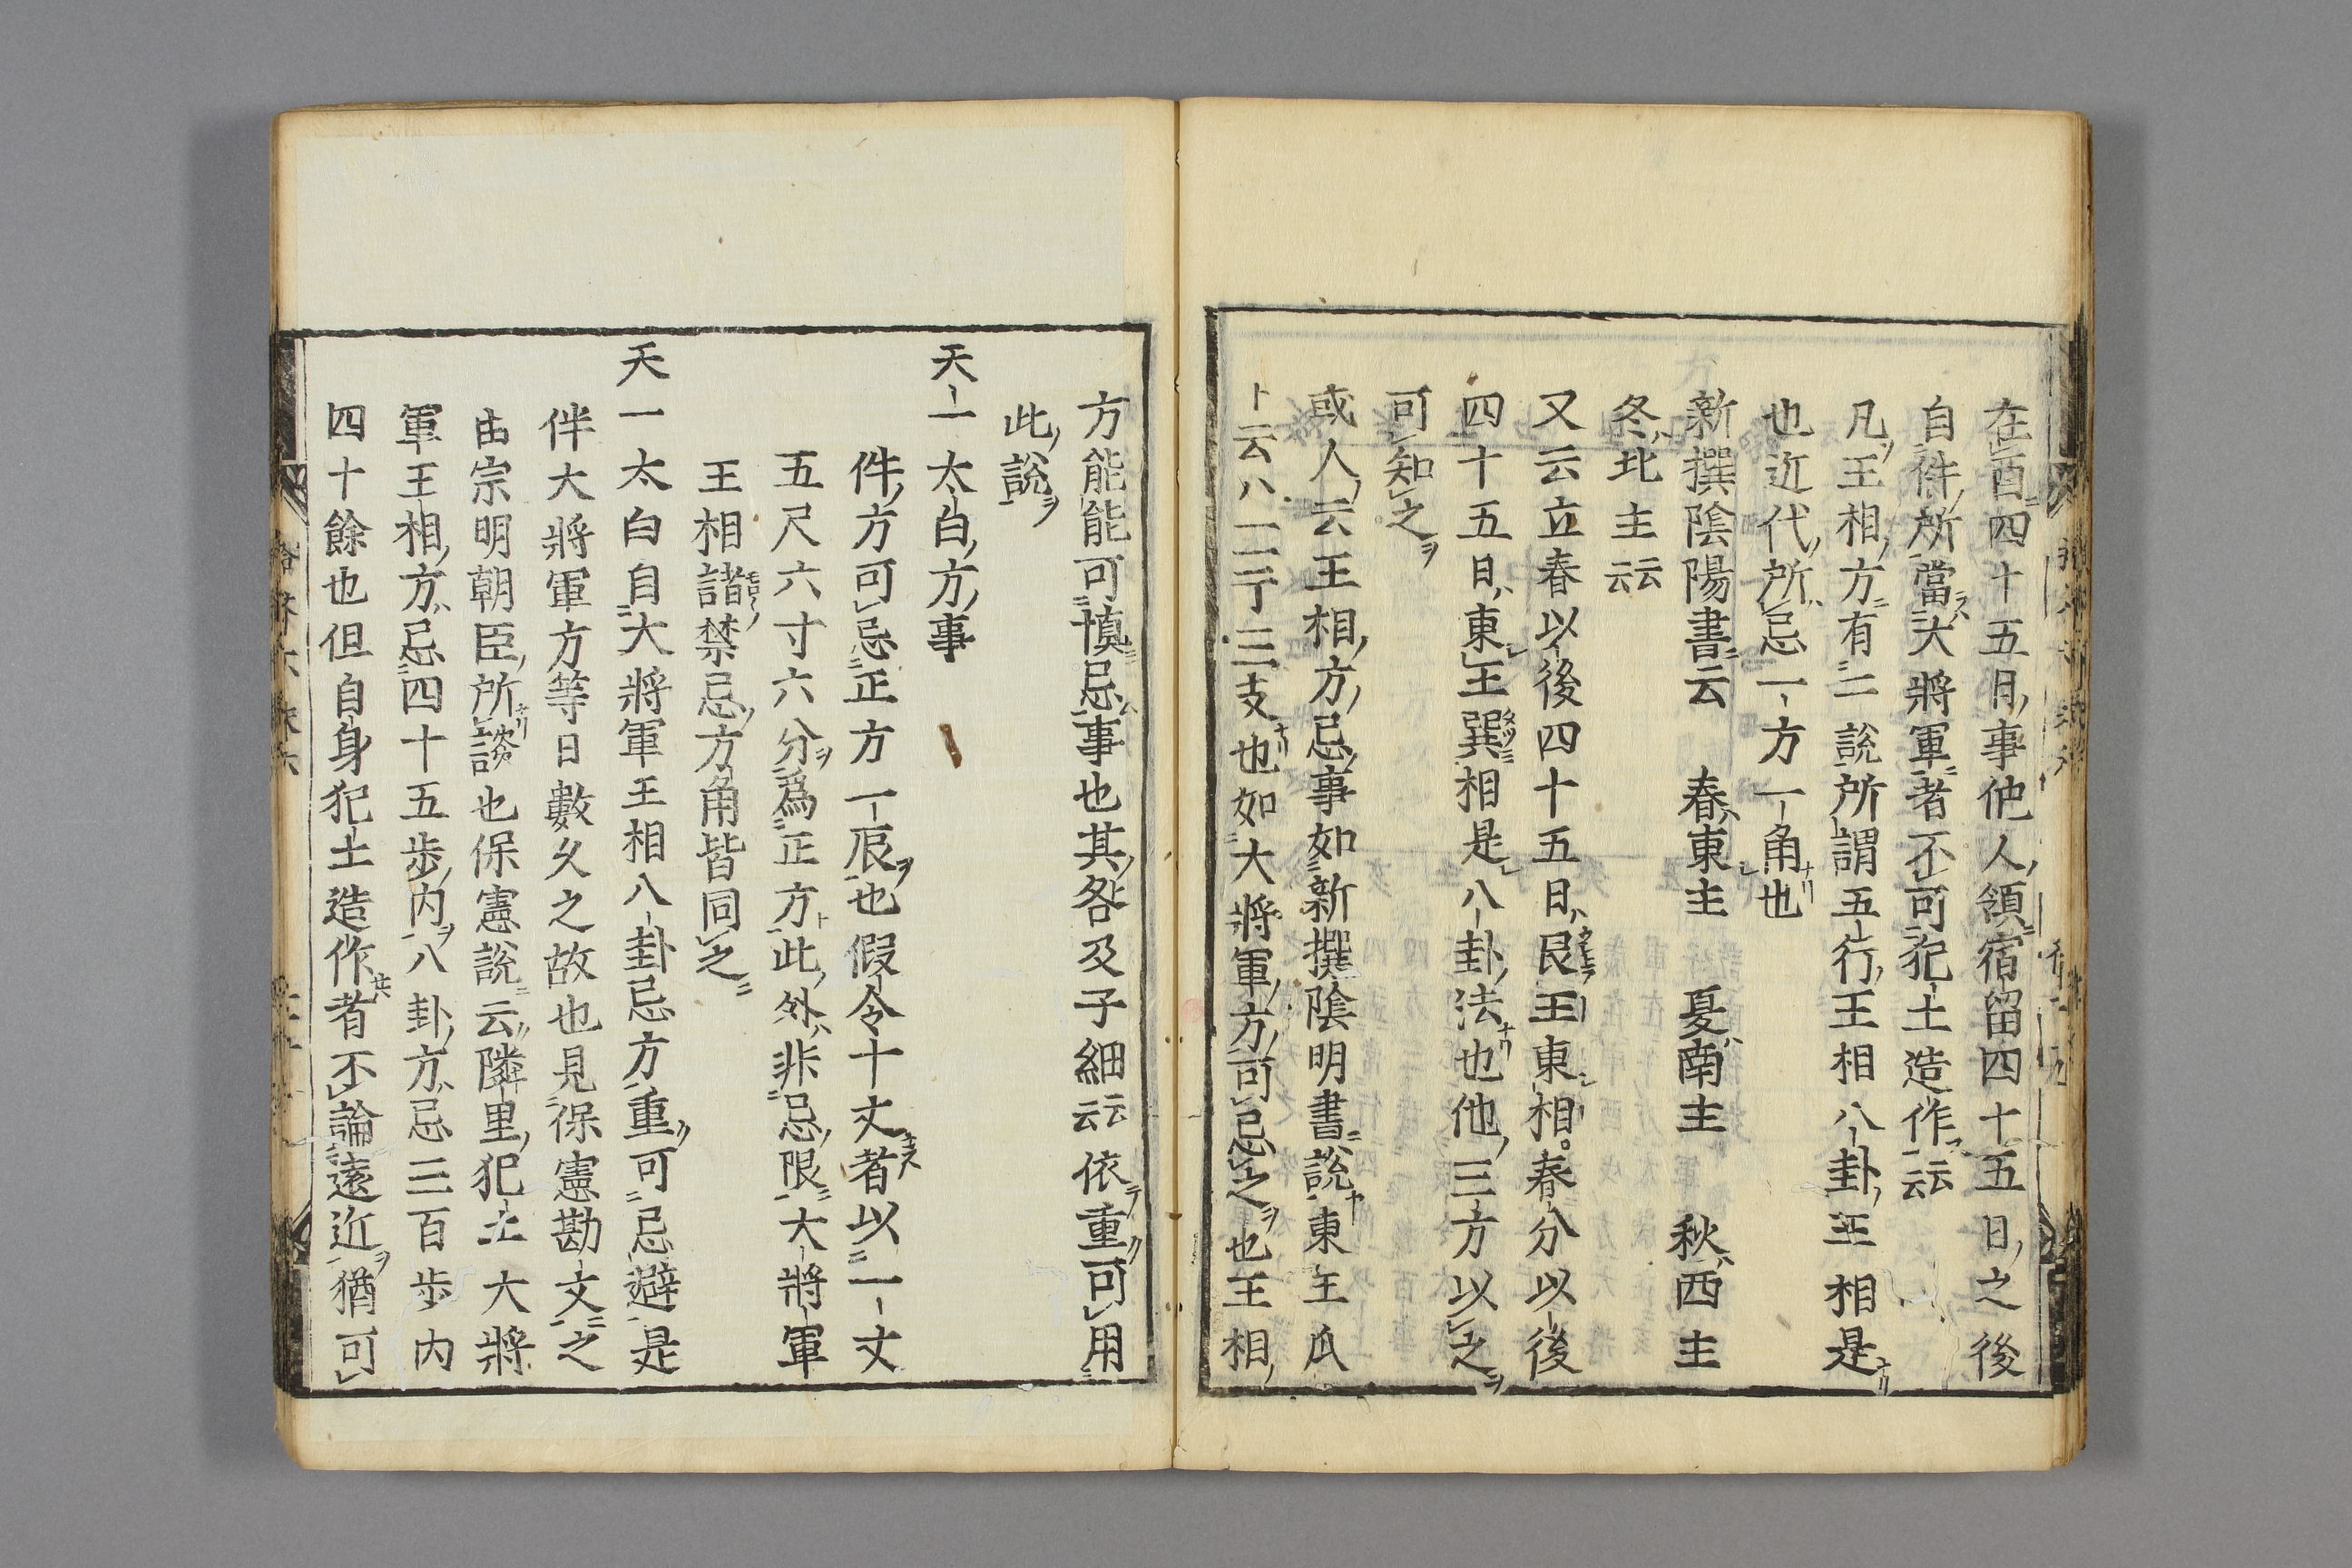 在酉四十五日事他人領宿留四十五日之後
自件所當大將軍者不可犯土造作云云
凡王相方有二說所謂五行王相八卦王相是
也近代所忌一方一角也
新撰陰陽書云　春東主　夏南主　秋西主
冬北主云云
又云立春以後四十五日艮王東相春分以後
四十五日東王巽相是八卦法也他三方以之
可知之
或人云王相方忌事如新撰陰明書說東王爪
卜云八一二丁三支也如大將軍方可忌之也王相
方能能可慎忌事也其咎及子細云云依重可用
此說
天一太白方事
件方可忌正方一辰也假令十丈者以一丈
五尺六寸六分為正方此外非忌限大將軍
王相諸禁忌方角皆同之
天一太白自大將軍王相八卦忌方重可忌避是
伴大將軍方等日數久之故也見保憲勘文之
由宗明朝臣所談也保憲說云隣里犯土大將
軍王相方忌四十五步內八卦方忌三百步內
四十餘也但自身犯土造作者不論遠近猶可